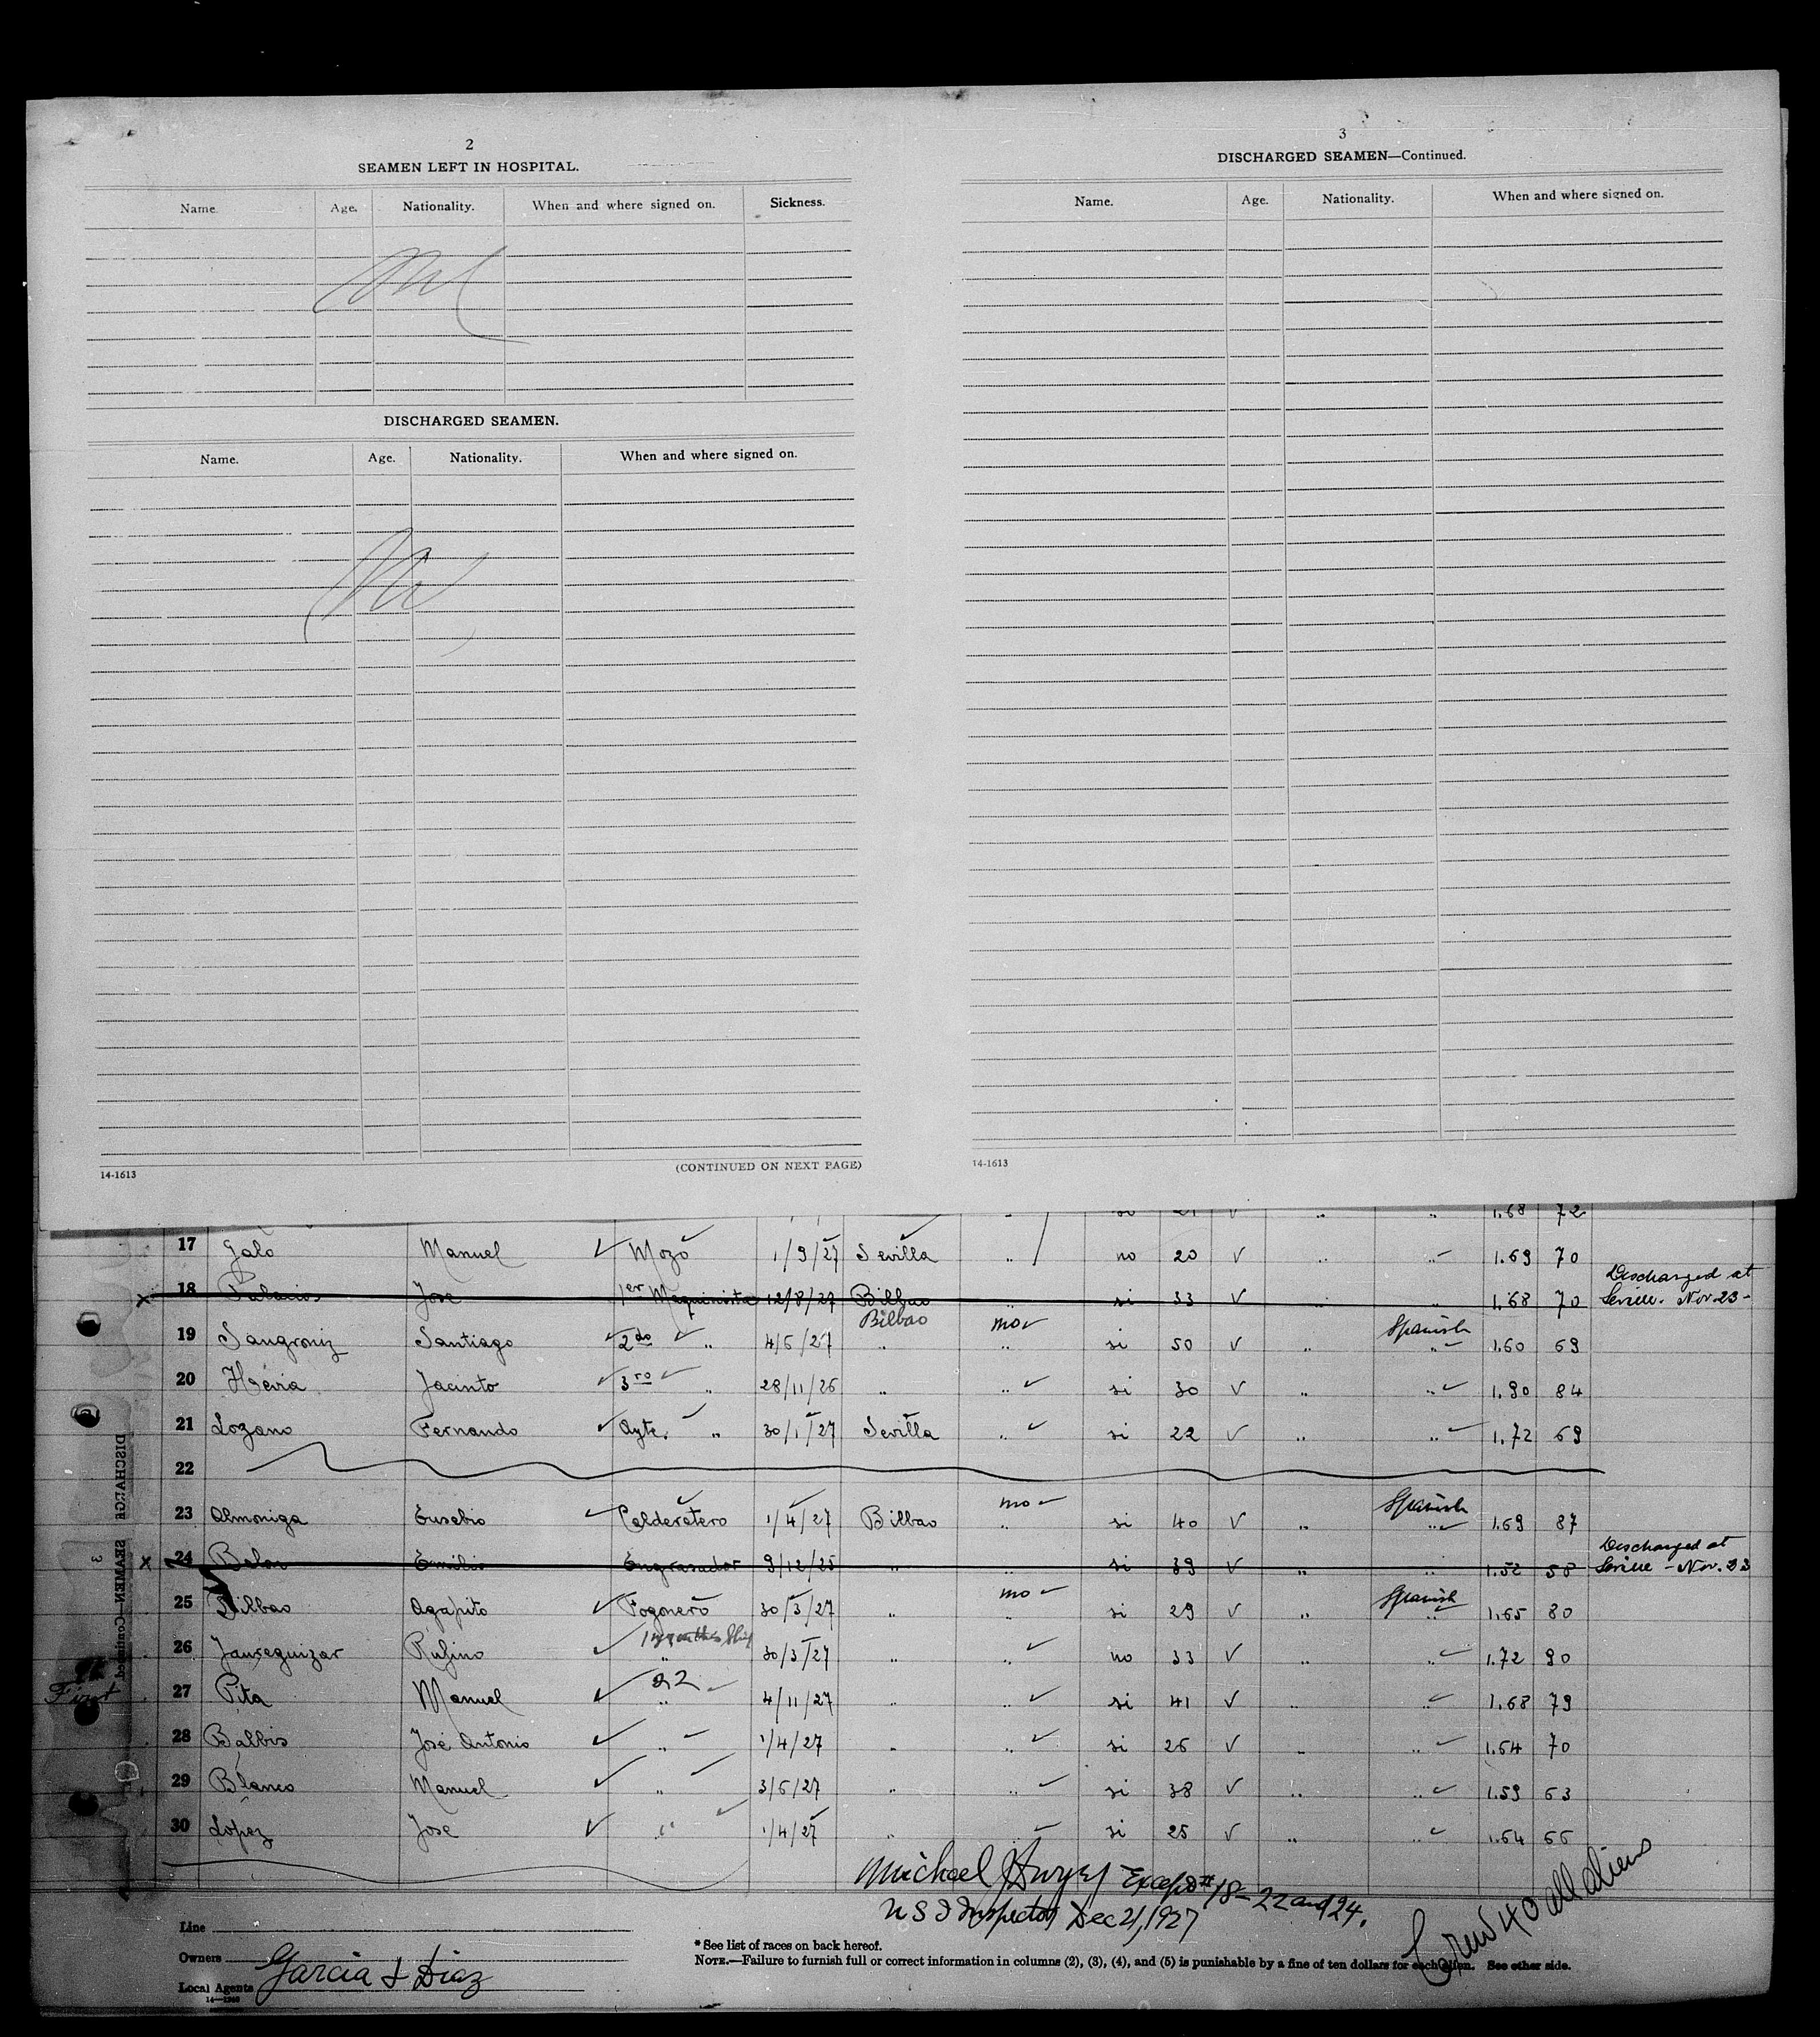 2
SEAMEN LEFT IN HOSPITAL.
Name. Age. Nationality. When and where signed on. Sickness.
DISCHARGED SEAMEN.
Name. Age. Nationality. When and where signed on.
14-1613 (CONTINUED ON NEXT PAGE)
3
DISCHARGED SEAMEN—Continued.
Name. Age. Nationality. When and where signed on.
14-1613
si 21 V .. .. 1.68 72
17 Galo Manuel ✓ Mozo 1/9/27 Sevilla .. no 20 V .. .. 1.69 70
Discharged at
x 18 Palacios Jose 1er Maquinista 12/8/27 Bilbao .. si 33 V .. .. 1.68 70 Seville. Nov-23-
Bilbao no ✓ Spanish
19 Sangroniz Santiago ✓ 2do .. 4/5/27 .. .. si 50 V .. .. 1.60 69
20 Hevia Jacinto ✓ 3ro .. 28/11/26 .. .. si 30 V .. .. 1.90 84
21 Lozano Fernando ✓ Ayte. .. 30/1/27 Sevilla .. si 22 V .. .. 1.72 69
22
no ✓ Spanish
23 Almoniga Eusebio ✓ Calderetero 1/4/27 Bilbao .. si 40 V .. .. 1.69 87
Discharged at
x 24 Emilio Engrasador 9/12/25 .. si 39 V .. .. 1.52 58 Seville - Nov. 23
no ✓ Spanish
25 Bilbao Agapito ✓ Fogonero 30/3/27 .. si 29 V .. .. 1.65 80
26 Jaureguizar Rufino ✓ .. 30/3/27 .. .. no 33 V .. .. 1.72 90
First 27 Pita Manuel ✓ .. 4/11/27 .. .. si 41 V .. .. 1.68 79
28 Balbis José Antonio ✓ .. 1/4/27 .. .. si 26 V .. .. 1.64 70
29 Blanco Manuel ✓ .. 3/6/27 .. .. si 38 V .. .. 1.59 63
30 Lopez Jose ✓ .. 1/4/27 .. si 25 V .. .. 1.64 66
DISCHARGE
3 SEAMEN—Continued
Michael Except # 18-22 and 24.
U S I Inspector Dec 21, 1927
Crew 40 all aliens
Line
Owners
Local Agents Garcia & Diaz
14—1240
* See list of races on back hereof.
NOTE.—Failure to furnish full or correct information in columns (2), (3), (4), and (5) is punishable by a fine of ten dollars for each alien. See other side.